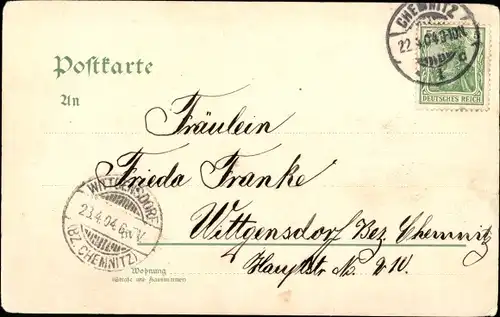 CHEMNITZ
22.4.04.9-10N.
1
DEUTSCHES REICH
Postkarte
An
Fräulein
Frieda Franke
Wittgensdorf Bez. Chemnitz
Hauptstr. No.
WITTGENSDORF
23.4.04.
(BZ. CHEMNITZ)
in
Wohnung
(Straße und Hausnummer)